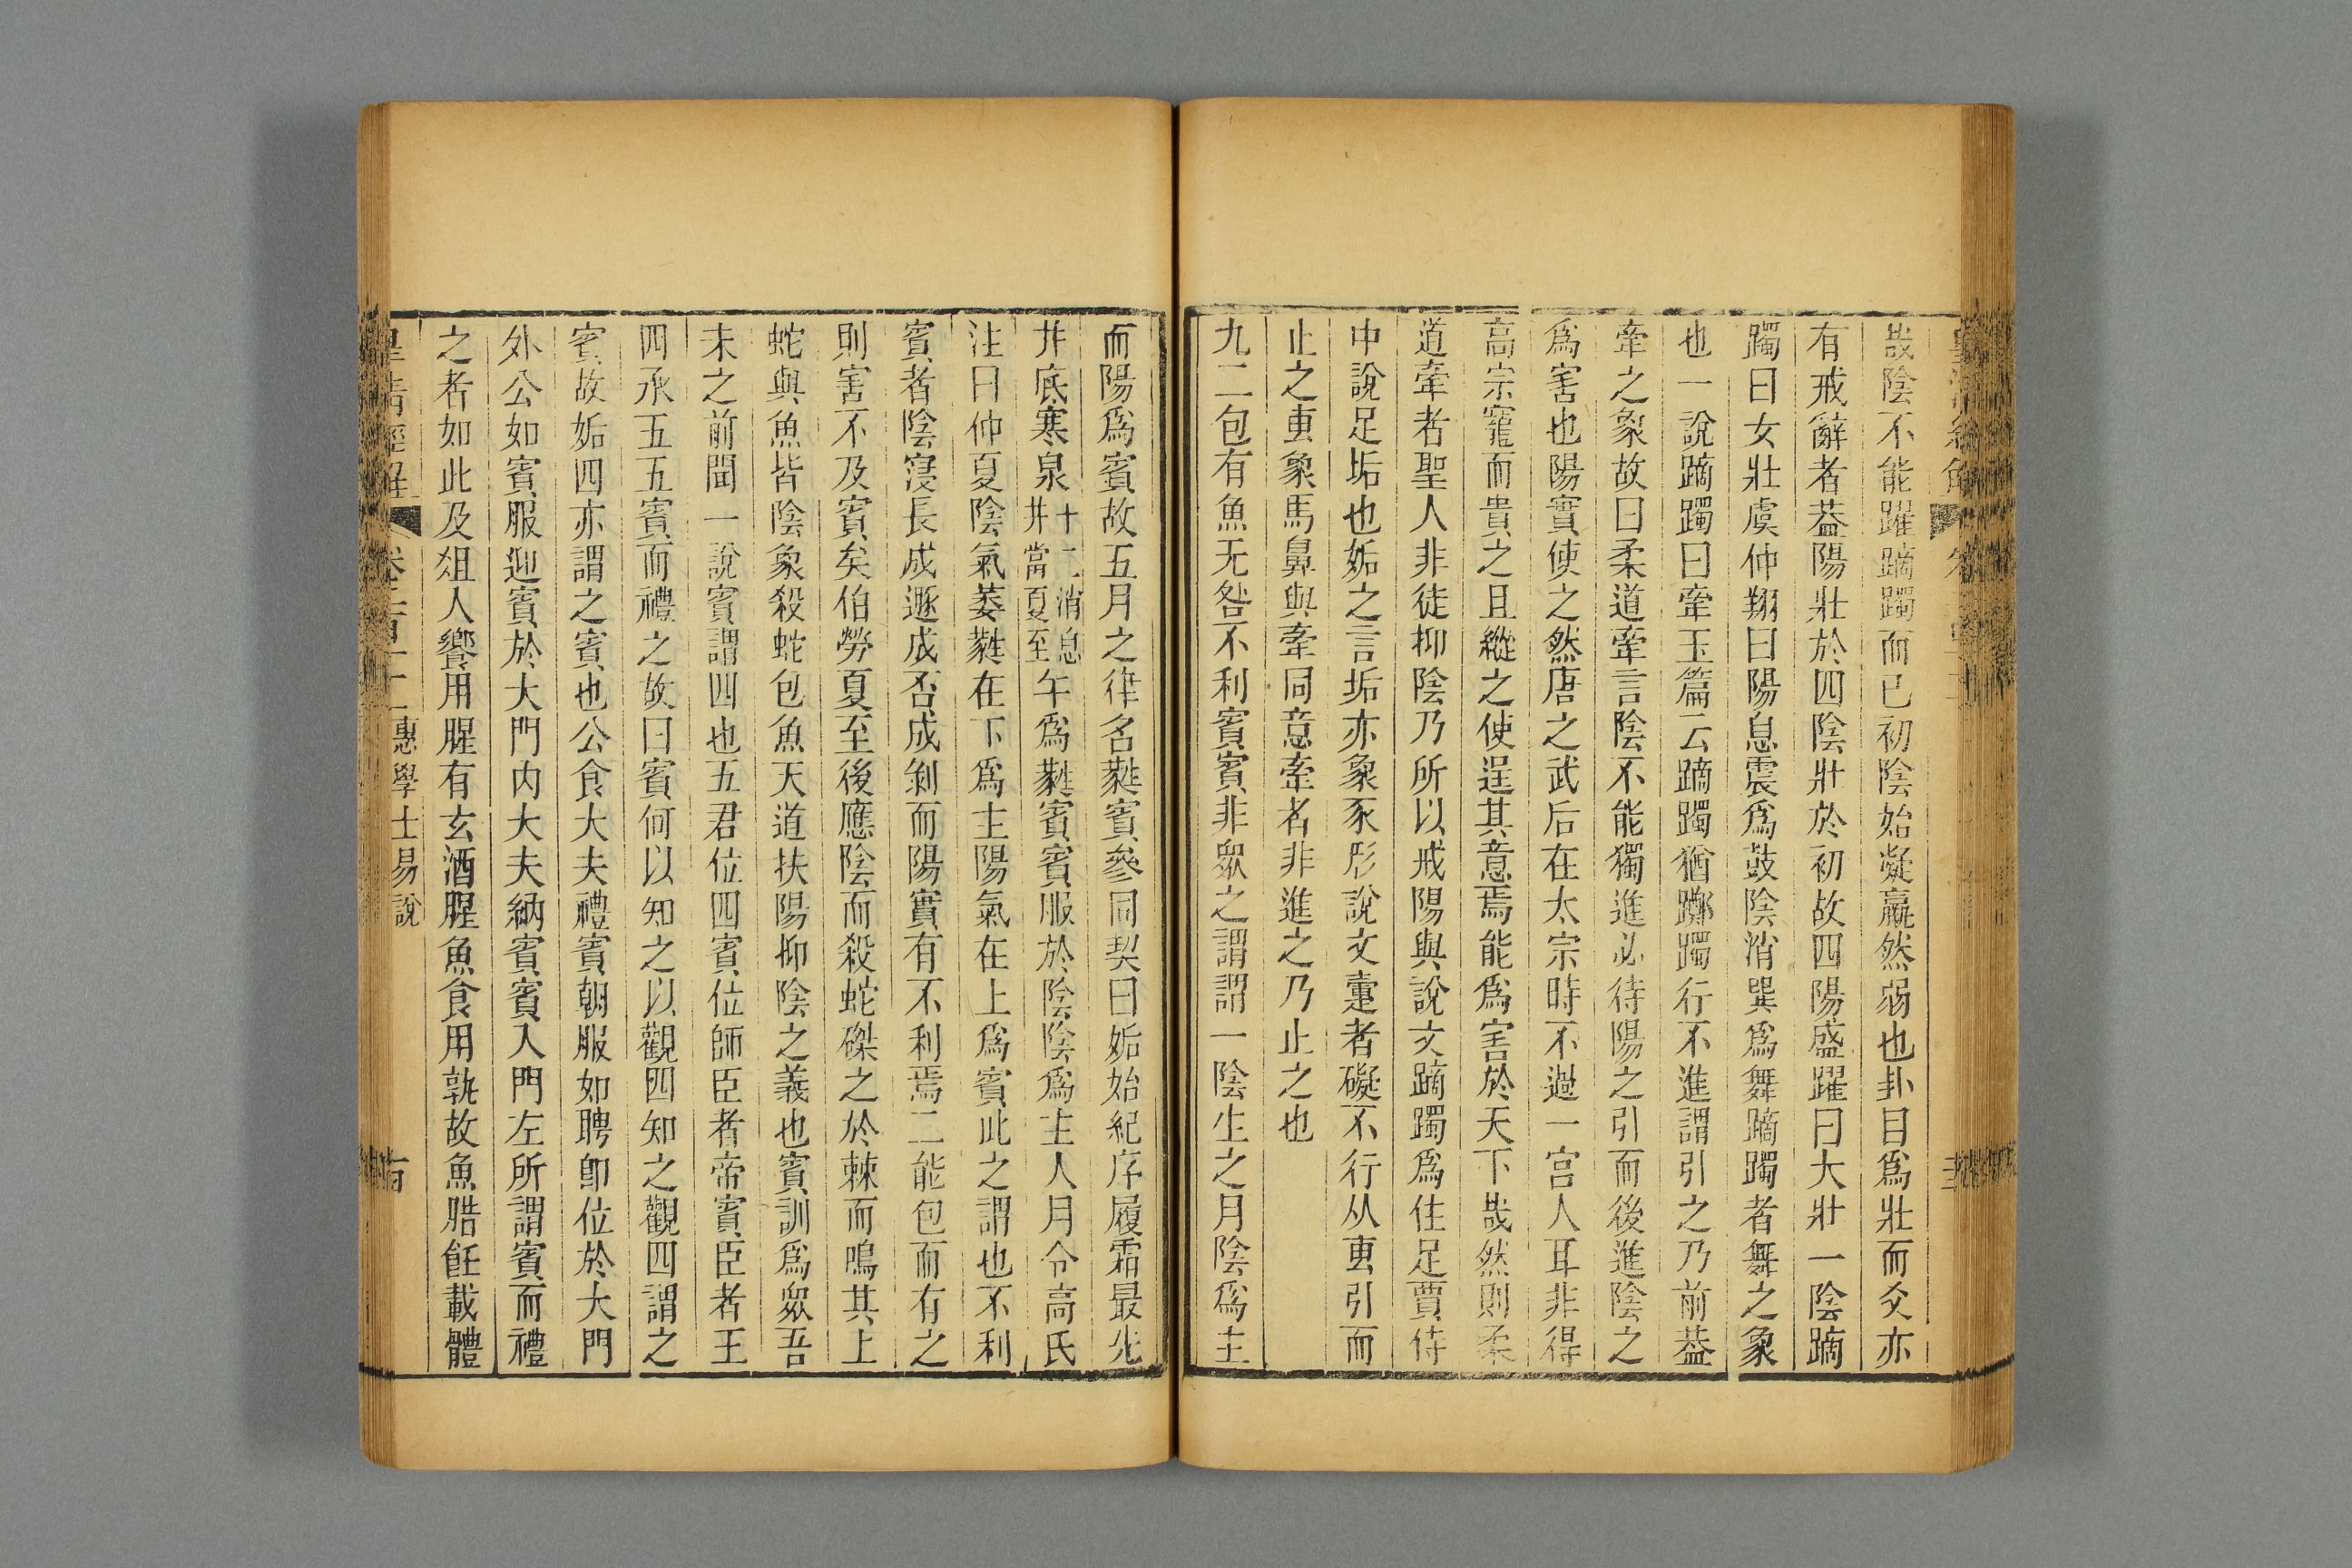 哉陰不能躍蹢躅而已初陰始凝羸然弱也卦目爲壯而爻亦
有戒辭者葢陽壯於四陰壯於初故四陽盛躍曰大壯一陰蹢
躅曰女壯虞仲翔曰陽息震爲鼓陰消巽爲舞蹢躅者舞之象
也一說蹢躅曰牽玉篇云蹢躅猶躑躅行不進謂引之乃前葢
牽之象故曰柔道牽言陰不能獨進必待陽之引而後進陰之
爲害也陽實使之然唐之武后在太宗時不過一宫人耳非得
高宗寵而貴之且縱之使逞其意焉能爲害於天下哉然則柔
道牽者聖人非徒抑陰乃所以戒陽與說文蹢躅爲住足賈侍
中說足垢也姤之言垢亦象豕形說文疐者礙不行从叀引而
止之叀象馬鼻與牽同意牽者非進之乃止之也
九二包有魚无咎不利賓賓非眾之謂謂一陰生之月陰爲主
而陽爲賓故五月之律名蕤賓參同契曰姤始紀序履霜最先
井底寒泉十二消息井當夏至午爲蕤賓賓服於陰陰爲主人月令高氏
注曰仲夏陰氣萎蕤在下爲主陽氣在上爲賓此之謂也不利
賓者陰寖長成遯成否成剝而陽實有不利焉二能包而有之
則害不及賓矣伯勞夏至後應陰而殺蛇磔之於棘而鳴其上
蛇與魚皆陰象殺蛇包魚天道扶陽抑陰之義也賓訓爲眾吾
未之前聞一說賓謂四也五君位四賓位師臣者帝賓臣者王
四承五五賓而禮之故曰賓何以知之以觀四知之觀四謂之
賓故姤四亦謂之賓也公食大夫禮賓朝服如聘卽位於大門
外公如賓服迎賓於大門内大夫納賓賓入門左所謂賓而禮
之者如此及俎人饗用腥有玄酒腥魚食用孰故魚腊飪載體
皇清經解 卷二百十一 惠學士易說